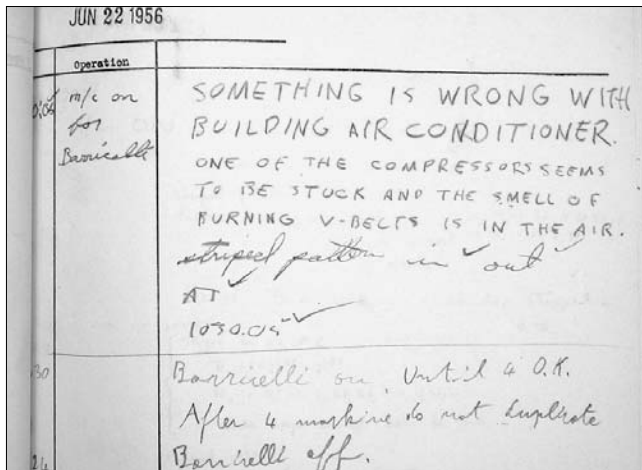 JUN 22 1956
Operation
m/c on
for
Barricelli
SOMETHING IS WRONG WITH
BUILDING AIR CONDITIONER.
ONE OF THE COMPRESSORS SEEMS
TO BE STUCK AND THE SMELL OF
BURNING V-BELTS IS IN THE AIR.
striped pattern in ✓ out ✓
AT ✓
1030.05 ✓
30
Barricelli on. Until 4 O.K.
After 4 machine do not duplicate
24
Barricelli off.